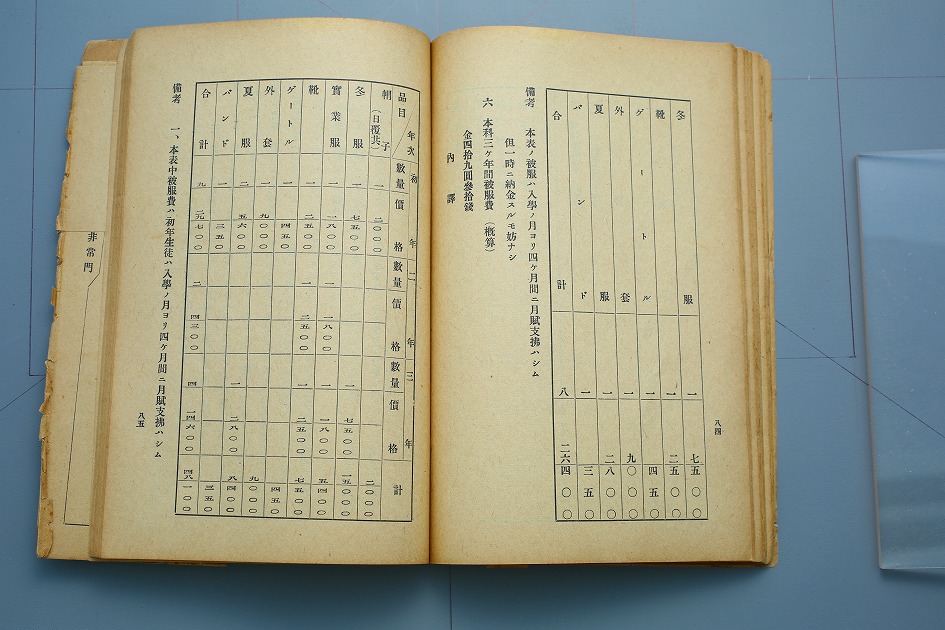 八四
冬服 一 七五〇〇
靴 一 二五〇〇
ゲートル 一 四五〇
外套 一 九〇〇〇
夏服 一 二八〇〇
バンド 一 三五〇
合計 八 二六四〇〇
備考 本表ノ被服ハ入學ノ月ヨリ四ケ月間ニ月賦支拂ハシム
但一時ニ納金スルモ妨ナシ
六 本科三ケ年間被服費(概算)
金四拾九圓參拾錢
內譯
品目/年次 初年 數量 價格 二年 數量 價格 三年 數量 價格 計
帽子(日覆共) 一 二〇〇〇 二〇〇〇
冬服 一 七五〇〇 一 七五〇〇 一五〇〇〇
實業服 一 一八〇〇 一 一八〇〇 一 一八〇〇 五四〇〇
靴 一 二五〇〇 一 二五〇〇 一 二五〇〇 七五〇〇
ゲートル 一 四五〇 四五〇
外套 一 九〇〇〇 九〇〇〇
夏服 二 五六〇〇 一 二八〇〇 八四〇〇
バンド 一 三五〇 三五〇
合計 九 二 四三〇〇 四 一四六〇〇 四八一〇〇
備考 一、本表中被服費ハ初年生徒ハ入學ノ月ヨリ四ケ月間ニ月賦支拂ハシム
八五
非常門